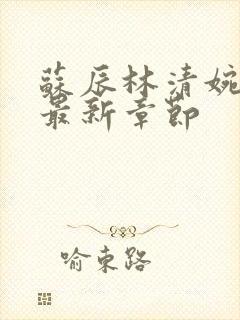 蘇辰林清婉
最新章節
喻東路